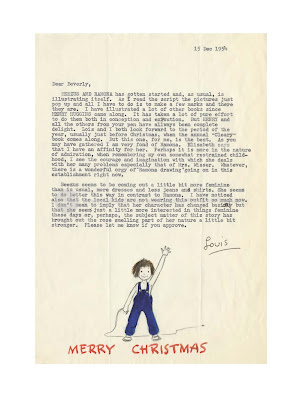 15 Dec 1954
Dear Beverly,
BEEZUS AND RAMONA has gotten started and, as usual, is
illustrating itself. As I read the script the pictures just
pop up and all I have to do is to make a few marks and there
they are. I have illustrated a lot of other books since
HENRY HUGGINS came along. It has taken a lot of pure effort
to do them both in conception and execution. But HENRY and
all the others from your pen have always been complete
delight. Lois and I both look forward to the period of the
year, usually just before Christmas, when the annual "Cleary"
book comes along. But this one, for me, is the best. As you
may have gathered I am very fond of Ramona. Elizabeth says
that I have an affinity for her. Perhaps it is more in the nature
of admiration, when remembering my own somewhat restrained child-
hood, I see the courage and imagination with which she deals
with her many problems especially that of Mrs. Wisser. Whatever,
there is a wonderful orgy of Ramona drawing going on in this
establishment right now.
Beezus seems to be coming out a little bit more feminine
than is usual, more dresses and less jeans and shirts. She seems
to do better this way in contrast to Ramona. I have noticed
also that the local kids are not wearing this outfit so much now.
I don't mean to imply that her character has changed basically but
that she seems just a little more interested in things feminine
these days or, perhaps, the subject matter of this story has
brought out the rose smelling part of her nature a little bit
stronger. Please let me know if you approve.
Louis
MERRY CHRISTMAS